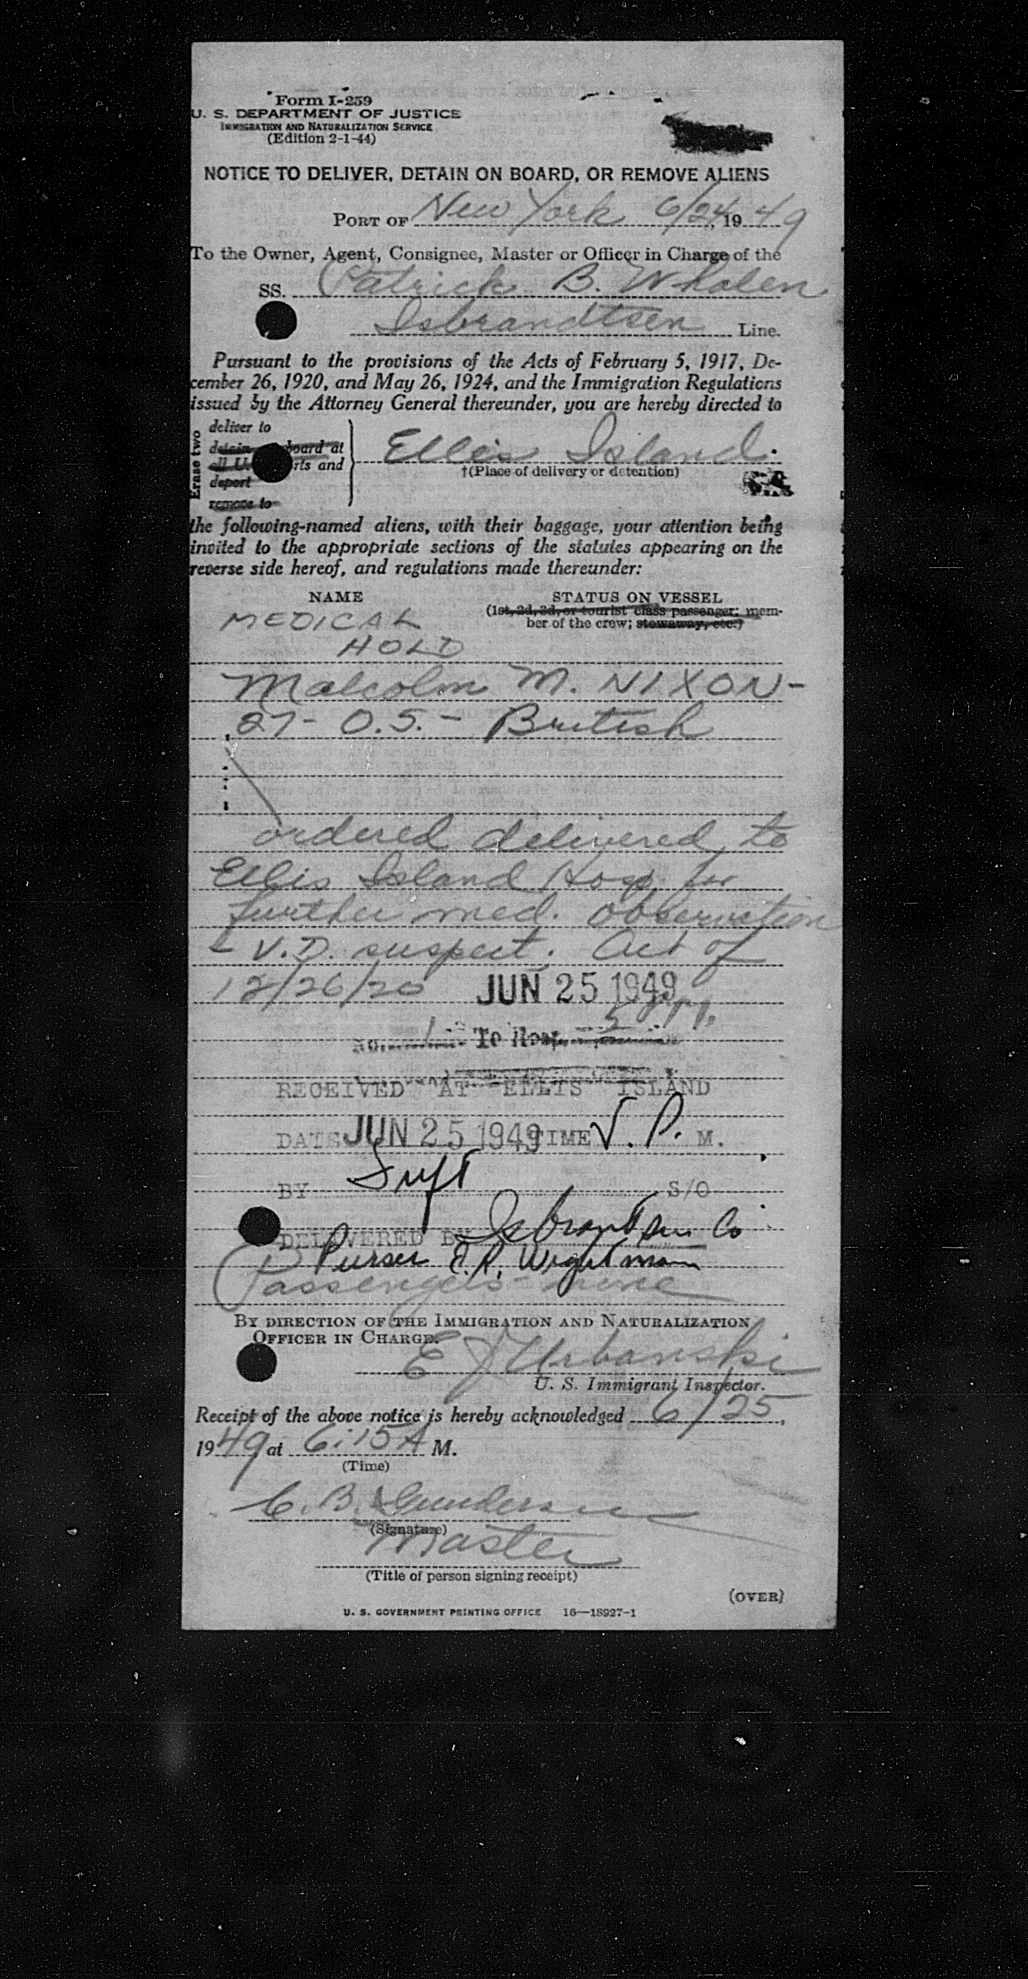 Form I-259
U. S. DEPARTMENT OF JUSTICE
IMMIGRATION AND NATURALIZATION SERVICE
(Edition 2-1-44)
NOTICE TO DELIVER, DETAIN ON BOARD, OR REMOVE ALIENS
PORT OF New York 6/24, 1949
To the Owner, Agent, Consignee, Master or Officer in Charge of the
SS. Patrick B. Whalen
Isbrandtsen Line.
Pursuant to the provisions of the Acts of February 5, 1917, De-
cember 26, 1920, and May 26, 1924, and the Immigration Regulations
issued by the Attorney General thereunder, you are hereby directed to
Erase two
deliver to
detain board at
all U rts and
deport
remove to
Ellis Island.
†(Place of delivery or detention)
the following-named aliens, with their baggage, your attention being
invited to the appropriate sections of the statutes appearing on the
reverse side hereof, and regulations made thereunder:
NAME STATUS ON VESSEL
(1st, 2d, 3d, or tourist class passenger; mem-
ber of the crew; stowaway, etc.)
MEDICAL
HOLD
Malcolm M. NIXON-
27- O.S. - British
ordered delivered to
Ellis Island Hosp for
further med. observation
- V.D. suspect. Act of
12/26/20 JUN 25 1949
To Hosp
RECEIVED AT ELLIS ISLAND
DATE JUN 25 1949 TIME P. M.
BY S/O
DELIVERED BY Isbrantsen Co
Purser E. R. Wightman
Passengers - none
BY DIRECTION OF THE IMMIGRATION AND NATURALIZATION
OFFICER IN CHARGE.
E J Urbanski
U. S. Immigrant Inspector.
Receipt of the above notice is hereby acknowledged 6/25,
1949 at 6:15 A M.
(Time)
C. B. Gundersen
(Signature)
Master
(Title of person signing receipt)
(OVER)
U. S. GOVERNMENT PRINTING OFFICE 16—18927-1